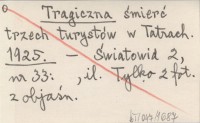 Tragiczna śmierć
trzech turystów w Tatrach.
1925. – Światowid 2,
nr 33: , il. Tylko 2 fot.
z objaśn.